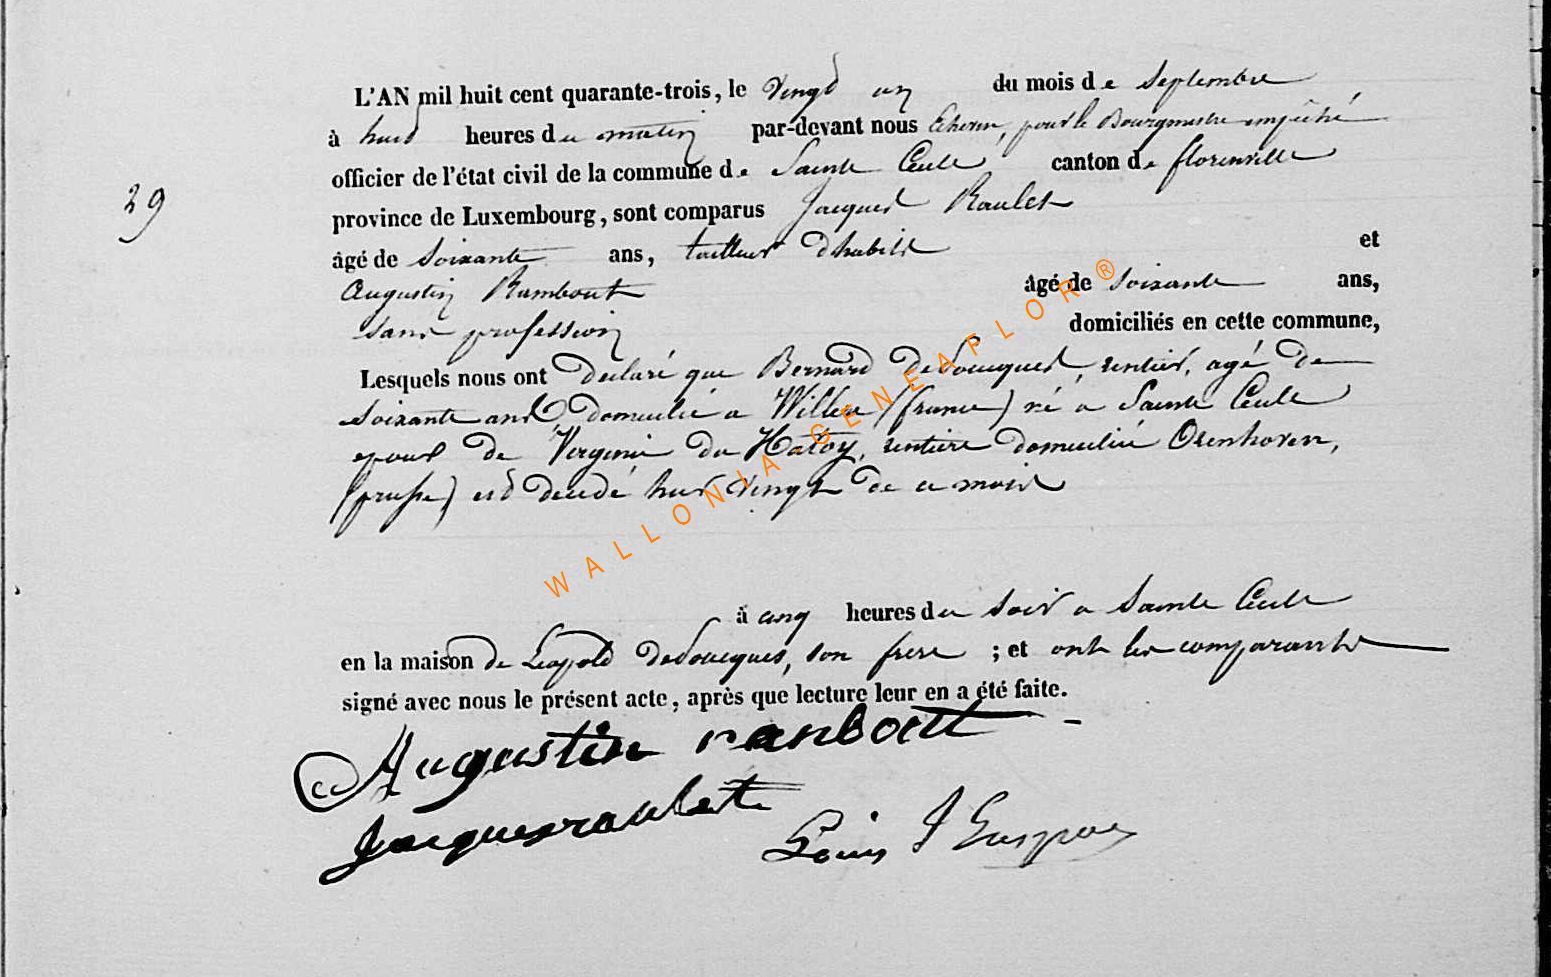 L'AN mil huit cent quarante-trois, le vingt un du mois de Septembre
à huit heures du matin par-devant nous Echevin, pour le Bourgmestre empêché
officier de l'état civil de la commune de Sainte Cecile canton de florenville
29
province de Luxembourg, sont comparus Jacques Raulet
âgé de Soixante ans, tailleur d'habits et
Augustin Rambout âgé de soixante ans,
sans profession domiciliés en cette commune,
Lesquels nous ont declaré que Bernard deSoucques, rentier, agé de
soixante ans, domicilié a (france) né a Sainte Cecile
epoux de Virginie du Hatoy, rentiere domiciliée Orenhoven,
(prusse) est decedé hier vingt de ce mois
à cinq heures du soir a Sainte Cecile
en la maison de Leopold deSoucques, son frere ; et ont les comparants
signé avec nous le présent acte, après que lecture leur en a été faite.
Augustin ranboutt
Jacques raulet
Louis J
WALLONIA GENEAFLOR ®